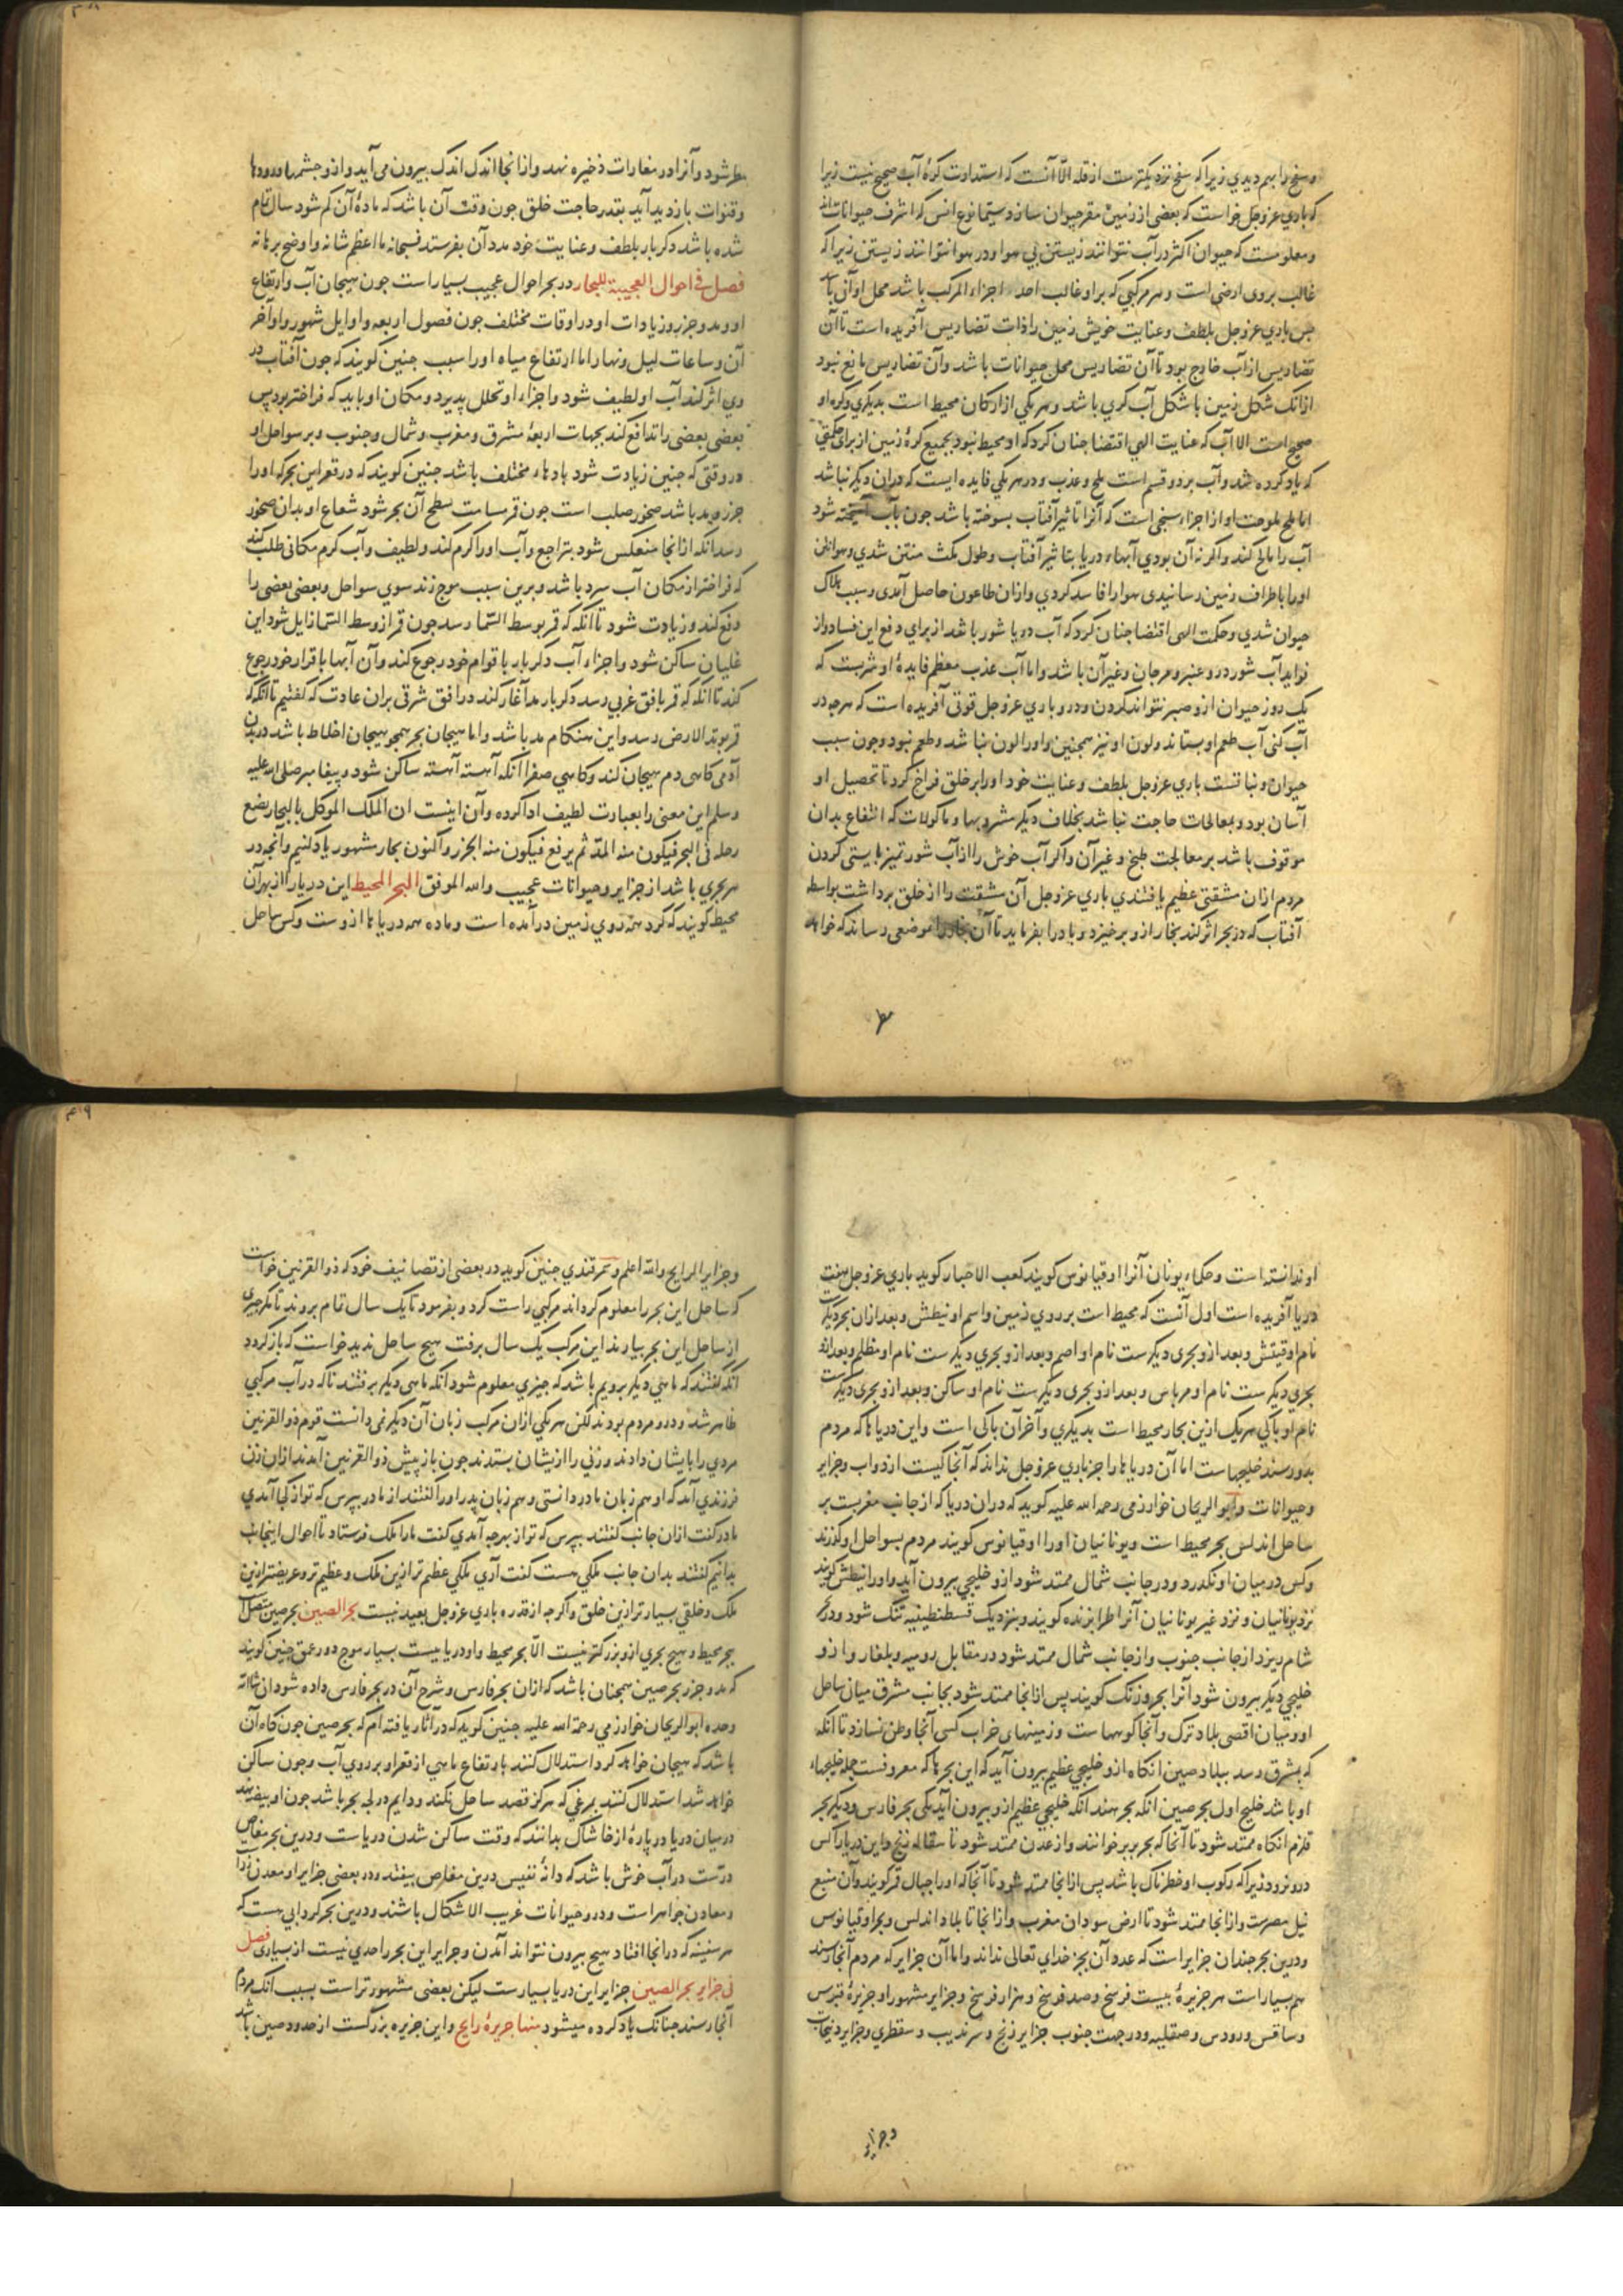 وسنخ را بهم دیدی زیراکه سنخ نزدیکترست از قله الا آنست که استدارت کرهٔ آب صحیح نیست زیرا
که باری عزوجل خواست که بعضی از زمین مقر حیوان سازد و سیما نوع انس که اشرف حیوانات
ومعلومست که حیوان اکثر در آب نتوانند زیستن بی هوا ودر هوا نتوانند زیستن زیراکه
غالب بروی ارضی است و هر مرکبی که برو غالب احد اجزاء المرکب باشد محل او آن
پس باری عزوجل بلطف وعنایت خویش زمین را ذات تضاریس آفریده است تا آن
تضاریس از آب خارج بود تا آن تضاریس محل حیوانات باشد وآن تضاریس مانع نبود
ازانک شکل زمین با شکل آب کری باشد وهر یکی از ارکان محیط است بدیکری وکره او
صحیح است الا آب که عنایت الهی اقتضا چنان کرد که او محیط نبود بجمیع کرهٔ زمین از برای
که یاد کرده شد وآب بر دو قسم است ملح وعذب ودر هر یکی فایده ایست که دران دیکر نباشد
اما ملح ملوحت او از اجزاء سنجی است که آنرا تاثیر آفتاب سوخته باشد جون بآب آمیخته شود
آب را مالح کند واکر نه آن بودی آبهاء دریا بتاثیر آفتاب وطول مکث منتن شدی وهوا ظن
اورا باطراف زمین رسانیدی هوا را فاسد کردی وازان طاعون حاصل آمدی وسبب هلاک
حیوان شدی وحکمت الهی اقتضا چنان کرد که آب دریا شور باشد از برای دفع این فساد واز
فواید آب شور در وعنبر ومرجان وغیرآن باشد واما آب عذب معظم فایدهٔ او شربست که
یک روز حیوان ازو صبر نتواند کردن ودرو باری عزوجل قوتی آفریده است که هرچه در
آب کنی آب طعم او بستاند ولون او نیز همجنین واورا لون نباشد وطعم نبود وجون سبب
حیوان ونباتست باری عزوجل بلطف وعنایت خود اورا بر خلق فراخ کرد تا تحصیل او
آسان بود وبمعالجات حاجت نباشد بخلاف دیکر مشروبها وماکولات که انتفاع بدان
موقوف باشد بر معالجت طبخ وغیرآن واکر آب خوش را از آب شور تمیز بایستی کردن
مردم ازان مشقتی عظیم یافتندی باری عزوجل آن مشقت را از خلق برداشت بواسطه
آفتاب که در بحر اثر کند بخار ازو برخیزد و باد را بفرماید تا آن بخار را موضعی رساند که خواهد
مطر شود وآنرا در مغارات ذخیره نهد وازانجا اندک اندک بیرون می آید وازو جشمها ورودها
وقنوات بازدید آید بقدر حاجت خلق جون وقت آن باشد که مادهٔ آن کم شود سال تمام
شده باشد دکر بار بلطف وعنایت خود مدد آن بفرستد فسبحانه ما اعظم شانه واوضح برهانه
فصل فی احوال العجیبة للبحار در بحر احوال عجیب بسیار است جون هیجان آب وارتفاع
او ومد وجزر وزیادات او در اوقات مختلف جون فصول اربعه واوایل شهور واواخر
آن وساعات لیل ونهار اما ارتفاع میاه اورا سبب جنین کویند که جون آفتاب در
وی اثر کند آب او لطیف شود واجزاء او تحلل پذیرد ومکان او باید که فراختر بود پس
بعضی بعضی را تدافع کند بجهات اربعهٔ مشرق ومغرب وشمال وجنوب وبر سواحل او
در وقتی که جنین زیادت شود بادهاء مختلف باشد جنین کویند که در قعر این بحر که اورا
جزر ومد باشد صخور صلب است جون قمر مسامت سطح آن بحر شود شعاع او بدان صخور
رسد آنکه ازانجا منعکس شود بتراجع وآب اورا کرم کند ولطیف وآب کرم مکانی طلب کند
که فراختر از مکان آب سرد باشد وبرین سبب موج زند سوی سواحل وبعضی بعضی را
دفع کند وزیادت شود تا آنکه که قمر بوسط السما رسد جون قمر از وسط السما زایل شود این
غلیان ساکن شود واجزاء آب دکر بار با قوام خود رجوع کند وآن آبها با قرار خود رجوع
کند تا آنکه که قمر بافق غربی رسد دکر بار مد آغاز کند در افق شرقی بران عادت که کفتیم تا آنکه که
قمر بوتد الارض رسد واین هنکام مد باشد واما هیجان بحر همجو هیجان اخلاط باشد در بدن
آدمی کاهی دم هیجان کند وکاهی صفرا آنکه آهسته آهسته ساکن شود وپیغامبر صلی الله علیه
وسلم این معنی را بعبارت لطیف ادا کرده وآن اینست ان الملک الموکل بالبحار یضع
رجله فی البحر فیکون منه المد ثم یرفع فیکون منه الجزر واکنون بحار مشهور یاد کنیم وآنجه در
هر بحری باشد از جزایر وحیوانات عجیب والله الموفق البحر المحیط این دریا را از بهر آن
محیط کویند که کرد همه روی زمین درآمده است وماده همه دریاها ازوست وکس ساحل
مطر
او ندانسته است وحکماء یونان آنرا اوقیانوس کویند کعب الاحبار کوید باری عزوجل هفت
دریا آفریده است اول آنست که محیط است بر روی زمین واسم او نیطش وبعد ازان بحر دیکرست
نام او قینش وبعد ازو بحری دیکرست نام او اصم وبعد ازو بحری دیکرست نام او مظلم وبعد ازو
بحری دیکرست نام او مرباس وبعد ازو بحری دیکرست نام او ساکن وبعد ازو بحری دیکرست
نام او باکی هر یک ازین بحار محیط است بدیکری وآخر آن باکی است واین دریاها که مردم
بدو رسند خلیجهاست اما آن دریاها را جز باری عزوجل نداند که آنجا کیست از دواب وجزایر
وحیوانات وابو الریحان خوارزمی رحمه الله علیه کوید که دران دریا که از جانب مغربست بر
ساحل اندلس بحر محیط است ویونانیان اورا اوقیانوس کویند مردم بسواحل او کذرند
وکس در میان او نکذرد ودر جانب شمال ممتد شود ازو خلیجی بیرون آید واورا نیطش کویند
نزد یونانیان ونزد غیر یونانیان آنرا طرابزنده کویند وبنزدیک قسطنطنیه تنک شود ودر
شام ریزد از جانب جنوب واز جانب شمال ممتد شود در مقابل رومیه وبلغار وازو
خلیجی دیکر بیرون شود آنرا بحر ورنک کویند پس ازانجا ممتد شود بجانب مشرق میان ساحل
او ومیان اقصی بلاد ترک وآنجا کوهها ست وزمینهای خراب کسی آنجا وطن نسازد تا آنکه
که بشرق رسد ببلاد صین آنکاه ازو خلیجی عظیم بیرون آید که این بحرها که معروفست جمله خلیجهاء
او باشد خلیج اول بحر صین آنکه بحر هند آنکه خلیجی عظیم ازو بیرون آید یکی بحر فارس ودیکر بحر
قلزم آنکاه ممتد شود تا آنجا که بحر بربر خوانند واز عدن ممتد شود تا سفاله زنج واین دریا را کس
درو نرود زیراکه رکوب او خطرناک باشد پس ازانجا ممتد شود تا آنجا که اورا جبال قمر کویند وآن منبع
نیل مصرست وازانجا ممتد شود تا ارض سودان مغرب وازانجا تا بلاد اندلس وبحر اوقیانوس
ودرین بحر جندان جزایر است که عدد آن بجز خدای تعالی نداند واما آن جزایر که مردم آنجا رسند
هم بسیار است هر جزیرهٔ بیست فرسخ وصد فرسخ وهزار فرسخ وجزایر مشهور او جزیرهٔ قبرس
وساقس ورودس وصقلیه ودر جهت جنوب جزایر زنج وسرندیب وسقطری وجزایر دیبجات
وجزایر
وجزایر الرایج والله اعلم وسمرقندی جنین کوید در بعضی از تصانیف خود که ذوالقرنین خواست
که ساحل این بحر را معلوم کرداند مرکبی راست کرد وبفرمود تا یک سال تمام بروند تا مکر خبری
از ساحل این بحر بیارند این مرکب یک سال برفت هیج ساحل ندید خواست که باز کردد
آنکه کفتند که ماهی دیکر برویم باشد که جیزی معلوم شود آنکه ماهی دیکر برفتند ناکه در آب مرکبی
ظاهر شد ودرو مردم بودند لکن هر یکی ازان مرکب زبان آن دیکر نمی دانست قوم ذوالقرنین
مردی را بایشان دادند وزنی را ازیشان بستدند جون باز پیش ذوالقرنین آمدند ازان زن
فرزندی آمد که او هم زبان مادر دانستی وهم زبان پدر اورا کفتند از مادر بپرس که تو از کجا آمدی
مادر کفت ازان جانب کفتند بپرس که تو از بهر جه آمدی کفت ما را ملک فرستاد تا احوال اینجانب
بدانیم کفتند بدان جانب ملکی هست کفت آری ملکی عظیم تر ازین ملک وعظیم تر وعریضتر ازین
ملک وخلقی بسیارتر ازین خلق واکرجه از قدرة باری عزوجل بعید نیست بحر الصین بحر صین متصل است
ببحر محیط وهیج بحری ازو بزرکتر نیست الا بحر محیط واو دریاییست بسیار موج دور عمق جنین کویند
که مد وجزر بحر صین همجنان باشد که ازان بحر فارس وشرح آن در بحر فارس داده شود ان شاالله
وحده ابو الریحان خوارزمی رحمة الله علیه جنین کوید که در آثار یافته ام که بحر صین جون کاه آن
باشد که هیجان خواهد کرد استدلال کنند بارتفاع ماهی از قعر او بر روی آب وجون ساکن
خواهد شد استدلال کنند بمرغی که هرکز قصد ساحل نکند ودایم در لجه بحر باشد جون او بیضه نهد
در میان دریا در پارهٔ از خاشاک بدانند که وقت ساکن شدن دریاست ودرین بحر مغاص
درست در آب خوش باشد که دانهٔ نفیس درین مغاص بیفتد ودر بعضی جزایر او معدن
ومعادن جواهر است ودرو حیوانات غریب الاشکال باشند ودرین بحر کردابی هست که
هر سفینه که درانجا افتاد هیج بیرون نتواند آمدن وجزایر این بحر را حدی نیست از بسیاری فصل
فی جزایر بحر الصین جزایر این دریا بسیارست لیکن بعضی مشهورتر است بسبب آنک مردم
آنجا رسند جنانک یاد کرده میشود منها جزیرهٔ رایج واین جزیره بزرکست از حدود صین باشد